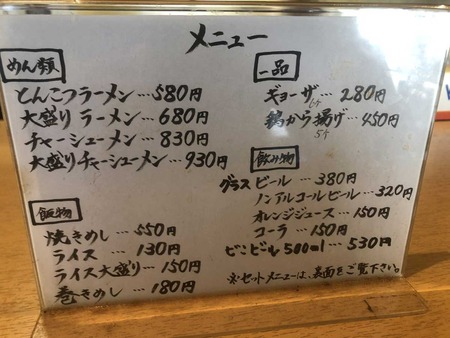 メニュー
めん類
とんこつラーメン…580円
大盛り ラーメン…680円
チャーシューメン…830円
大盛りチャーシューメン…930円
飯物
焼きめし…550円
ライス…130円
ライス大盛り…150円
巻きめし…180円
一品
ギョーザ…280円
6ケ
鶏から揚げ…450円
5ケ
飲み物
グラスビール…380円
ノンアルコールビール…320円
オレンジジュース…150円
コーラ…150円
ビンビール500ml…530円
※セットメニューは、裏面をご覧下さい。